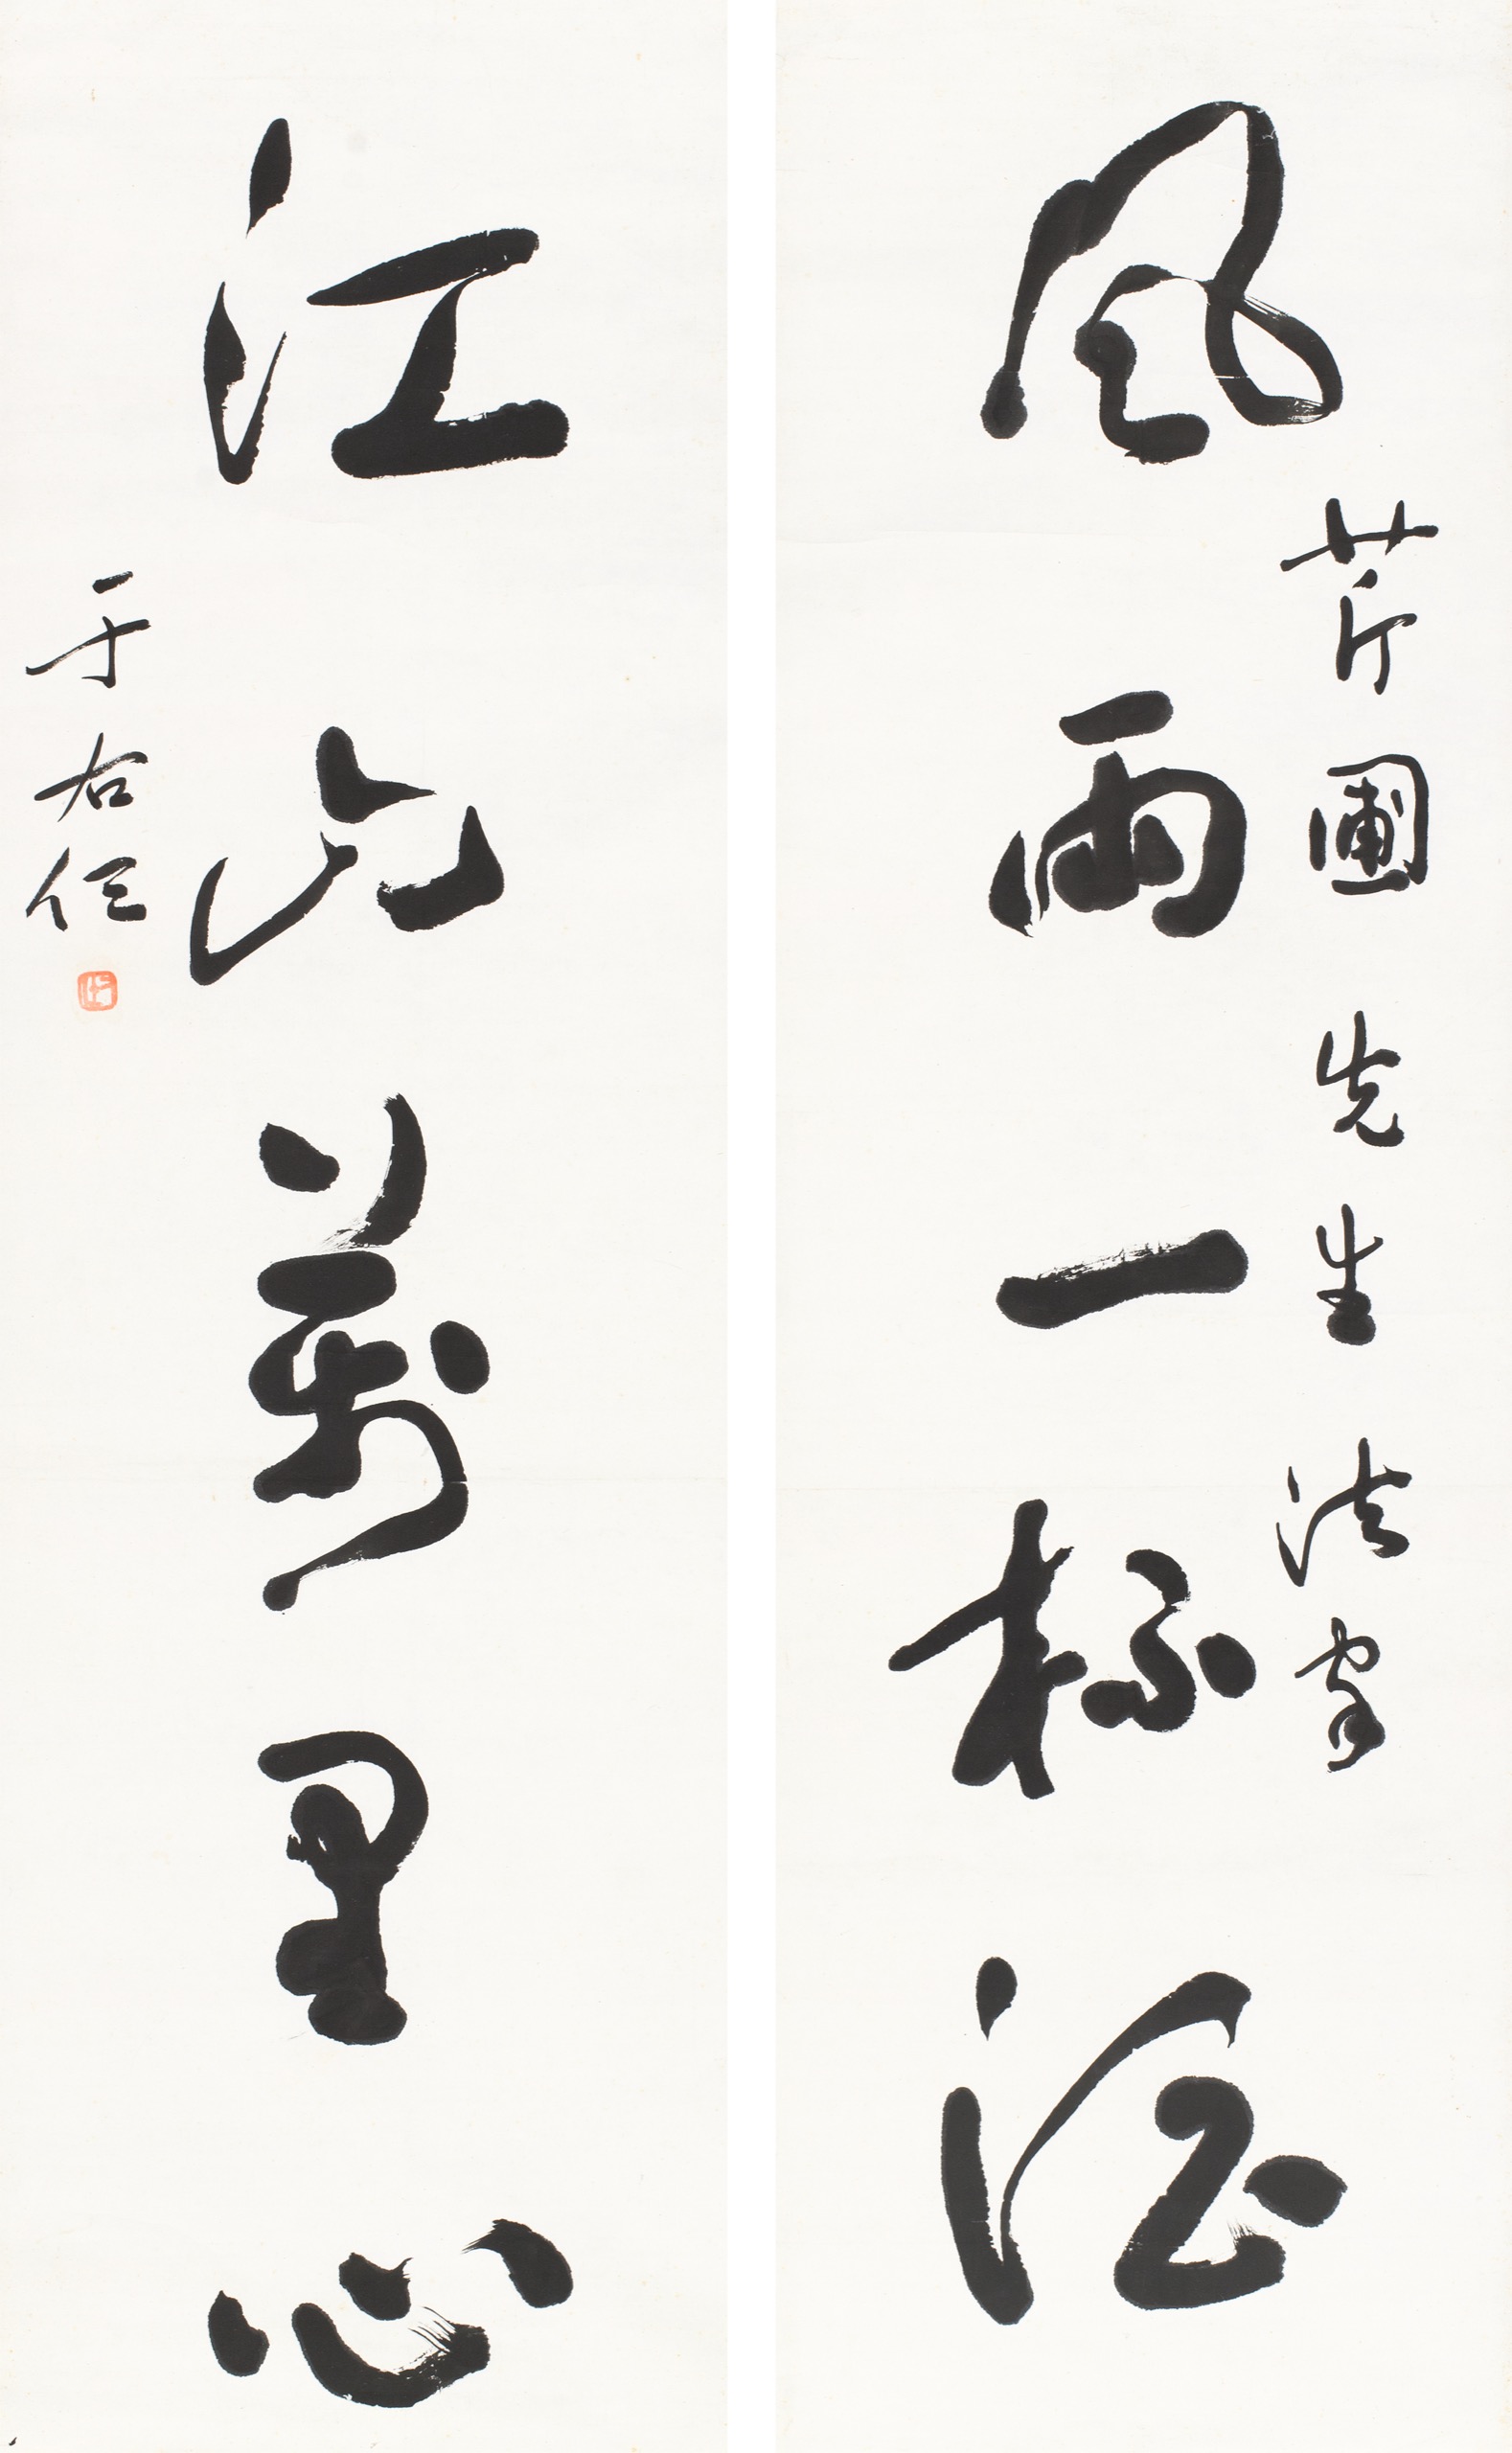 芹圃先生法家
風雨一杯酒
江山萬里心
于右任